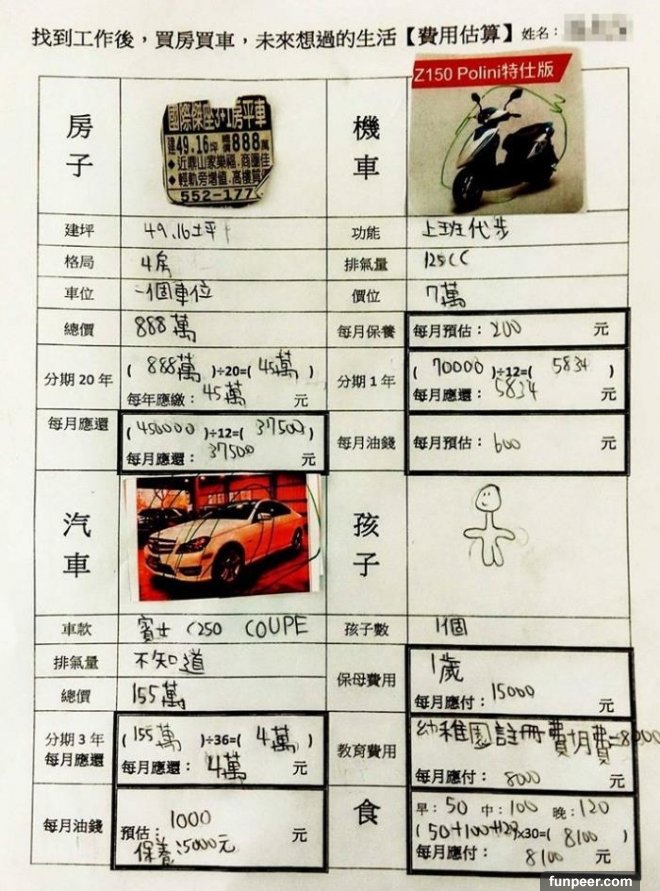 找到工作後，買房買車，未來想過的生活【費用估算】姓名：
房子
國際傑座3+1房平車
建49.16坪 888萬
◆近鼎山家樂福.商圈佳
◆輕軌旁增值.高樓
552-177
機車
Z150 Polini特仕版
建坪 49.16坪
功能 上班代步
格局 4房
排氣量 125CC
車位 一個車位
價位 7萬
總價 888萬
每月保養 每月預估：200 元
分期20年 ( 888萬 )÷20=( 45萬 )
每年應繳：45萬 元
分期1年 ( 70000 )÷12=( 5834 )
每月應還：5834 元
每月應還 ( 450000 )÷12=( 37500 )
每月應還：37500 元
每月油錢 每月預估：600 元
汽車
孩子
車款 賓士 C250 COUPE
孩子數 1個
排氣量 不知道
總價 155萬
保母費用 1歲
每月應付：15000 元
分期3年 ( 155萬 )÷36=( 4萬 )
每月應還 每月應還：4萬 元
教育費用 幼稚園註冊費+月費=8000
每月應付：8000 元
每月油錢 預估：1000 元
保養：5000元
食
早：50 中：100 晚：120
( 50+100+120 )x30=( 8100 )
每月應付：8100 元
funpeer.com